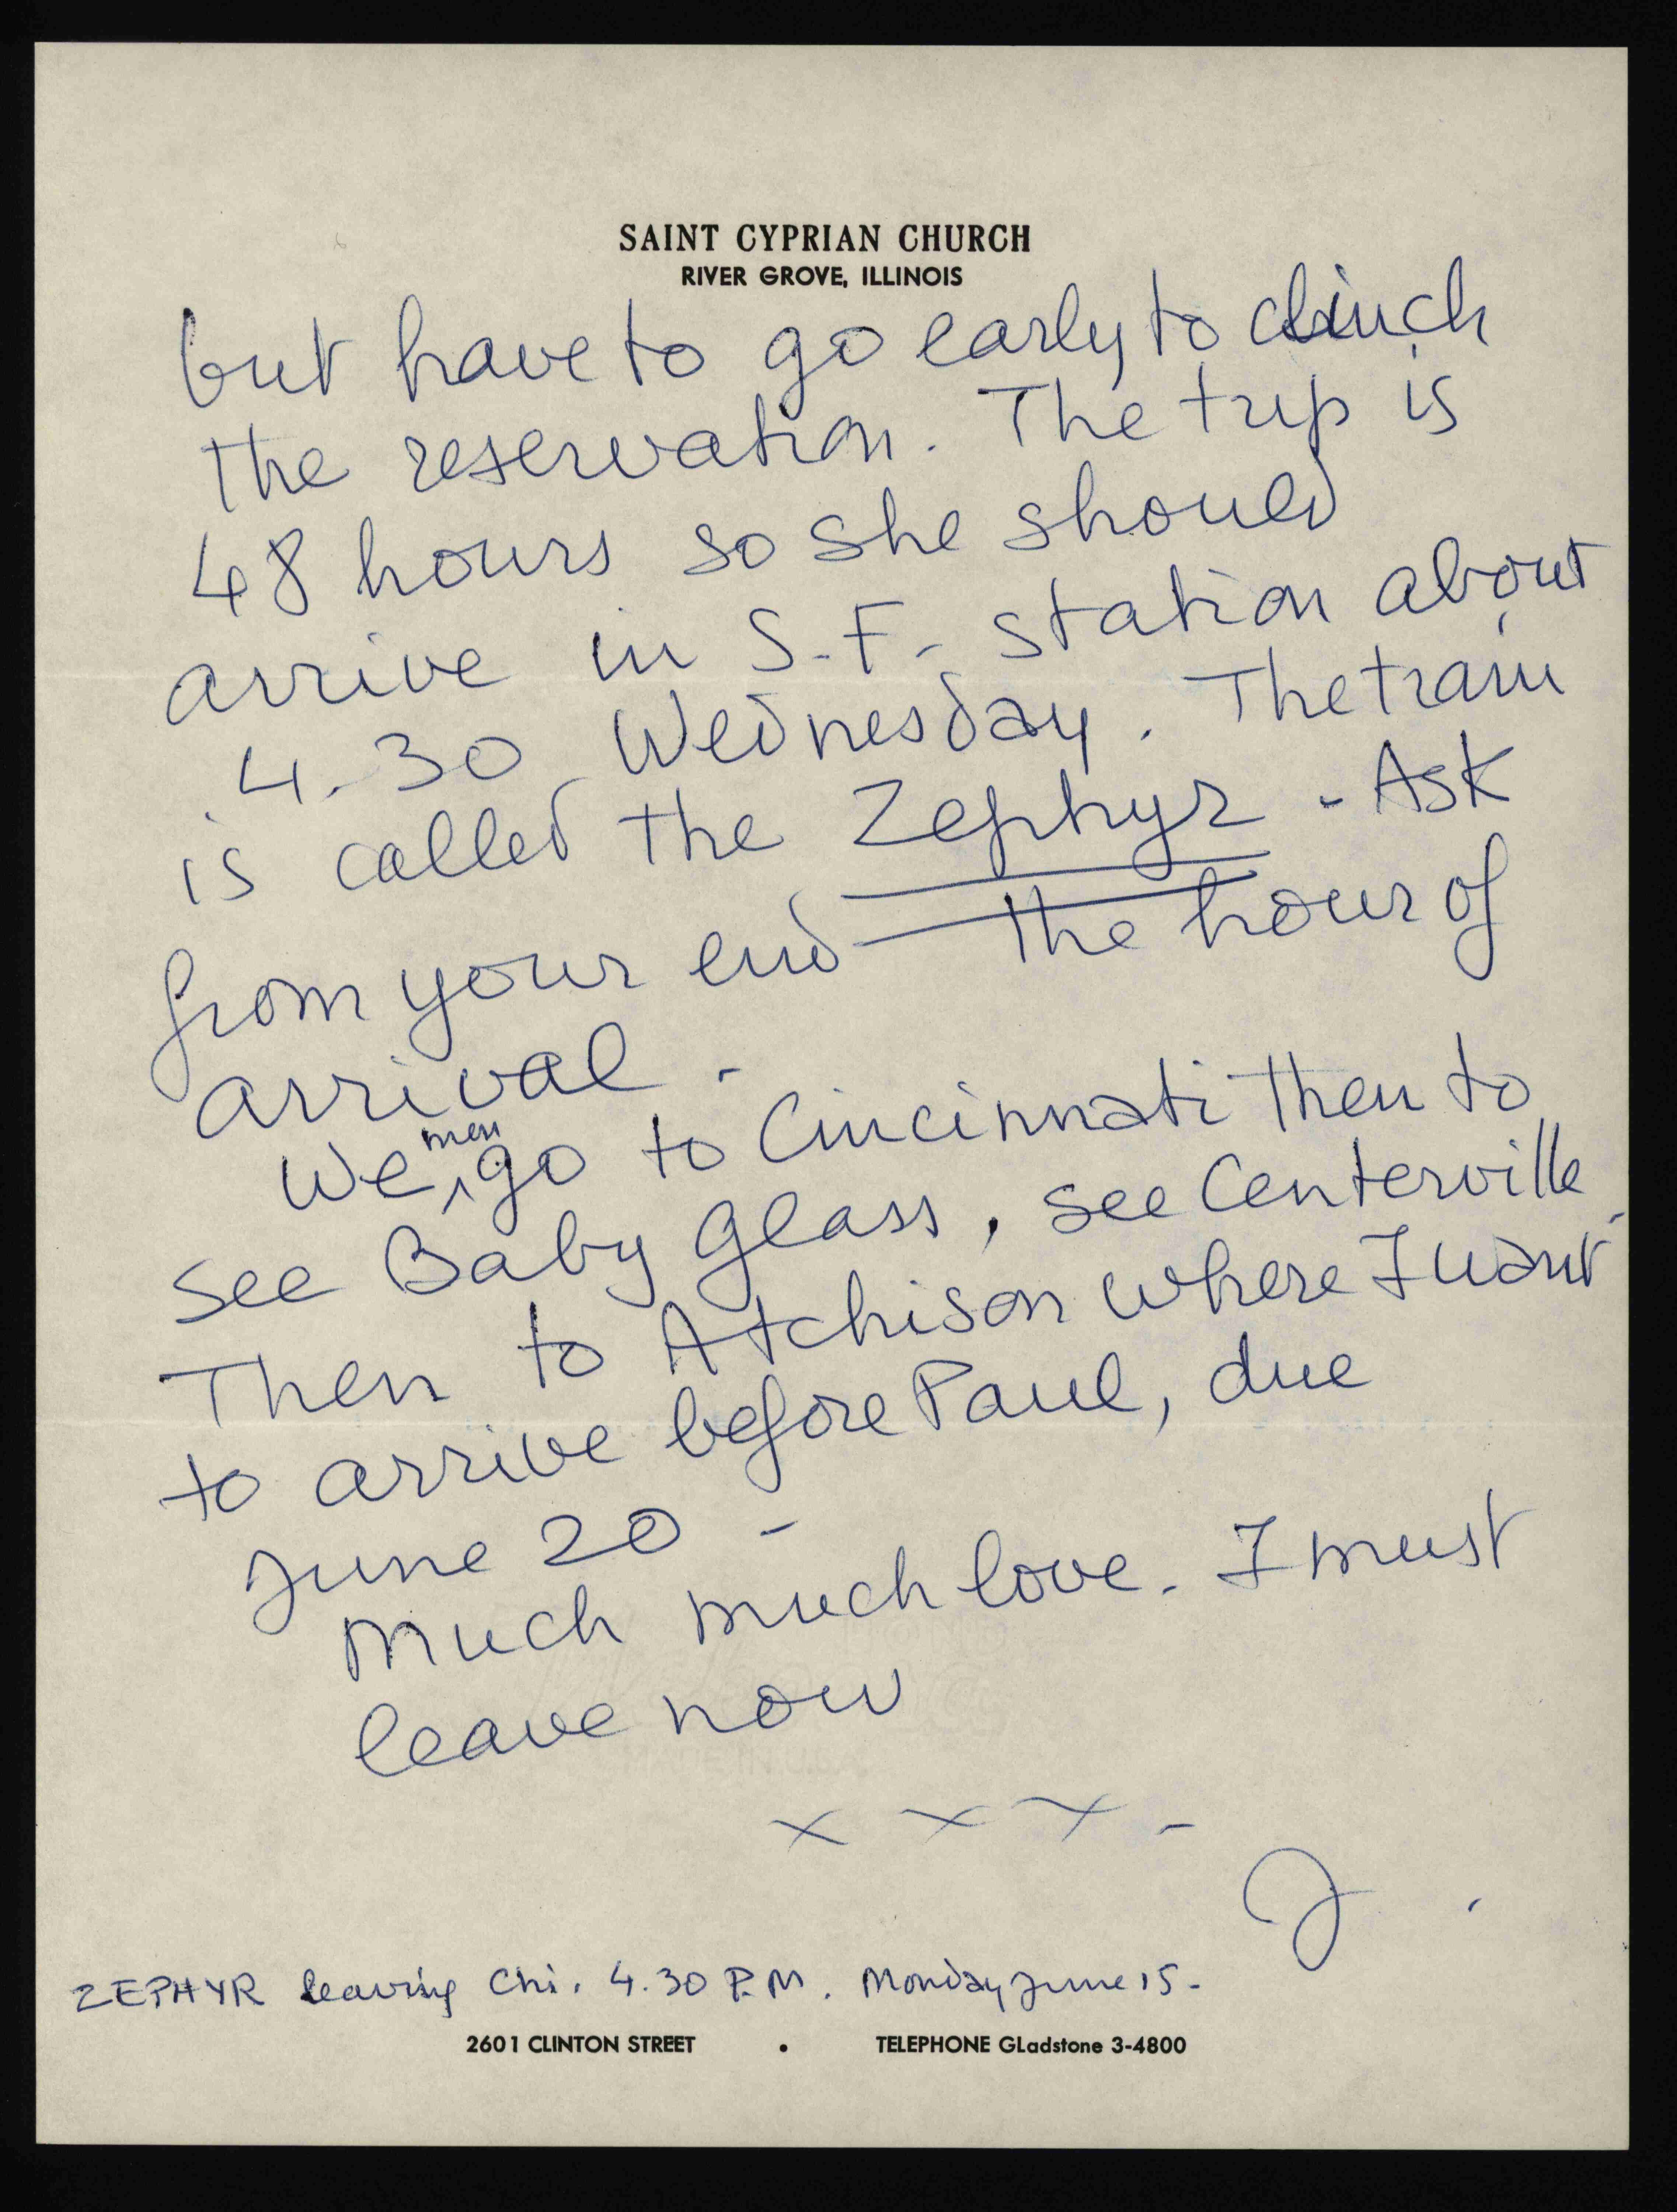 SAINT CYPRIAN CHURCH
RIVER GROVE, ILLINOIS
but have to go early to clinch
the reservation. The trip is
48 hours so she should
arrive in S.F. station about
4.30 Wednesday. The train
is called the Zephyr - Ask
from your end — the hour of
arrival -
We men go to Cincinnati then to
see Baby Glass, see Centerville.
Then to Atchison where I want
to arrive before Paul, due
June 20 -
Much much love. I must
leave now
x x x -
J.
ZEPHYR leaving Chi. 4.30 P.M. Monday June 15-
2601 CLINTON STREET • TELEPHONE GLadstone 3-4800